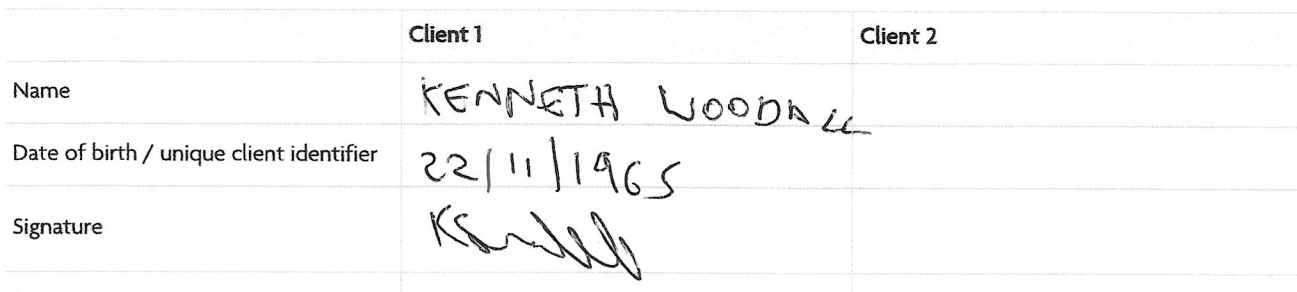 Client 1 Client 2
Name KENNETH WOODALL
Date of birth / unique client identifier 22/11/1965
Signature